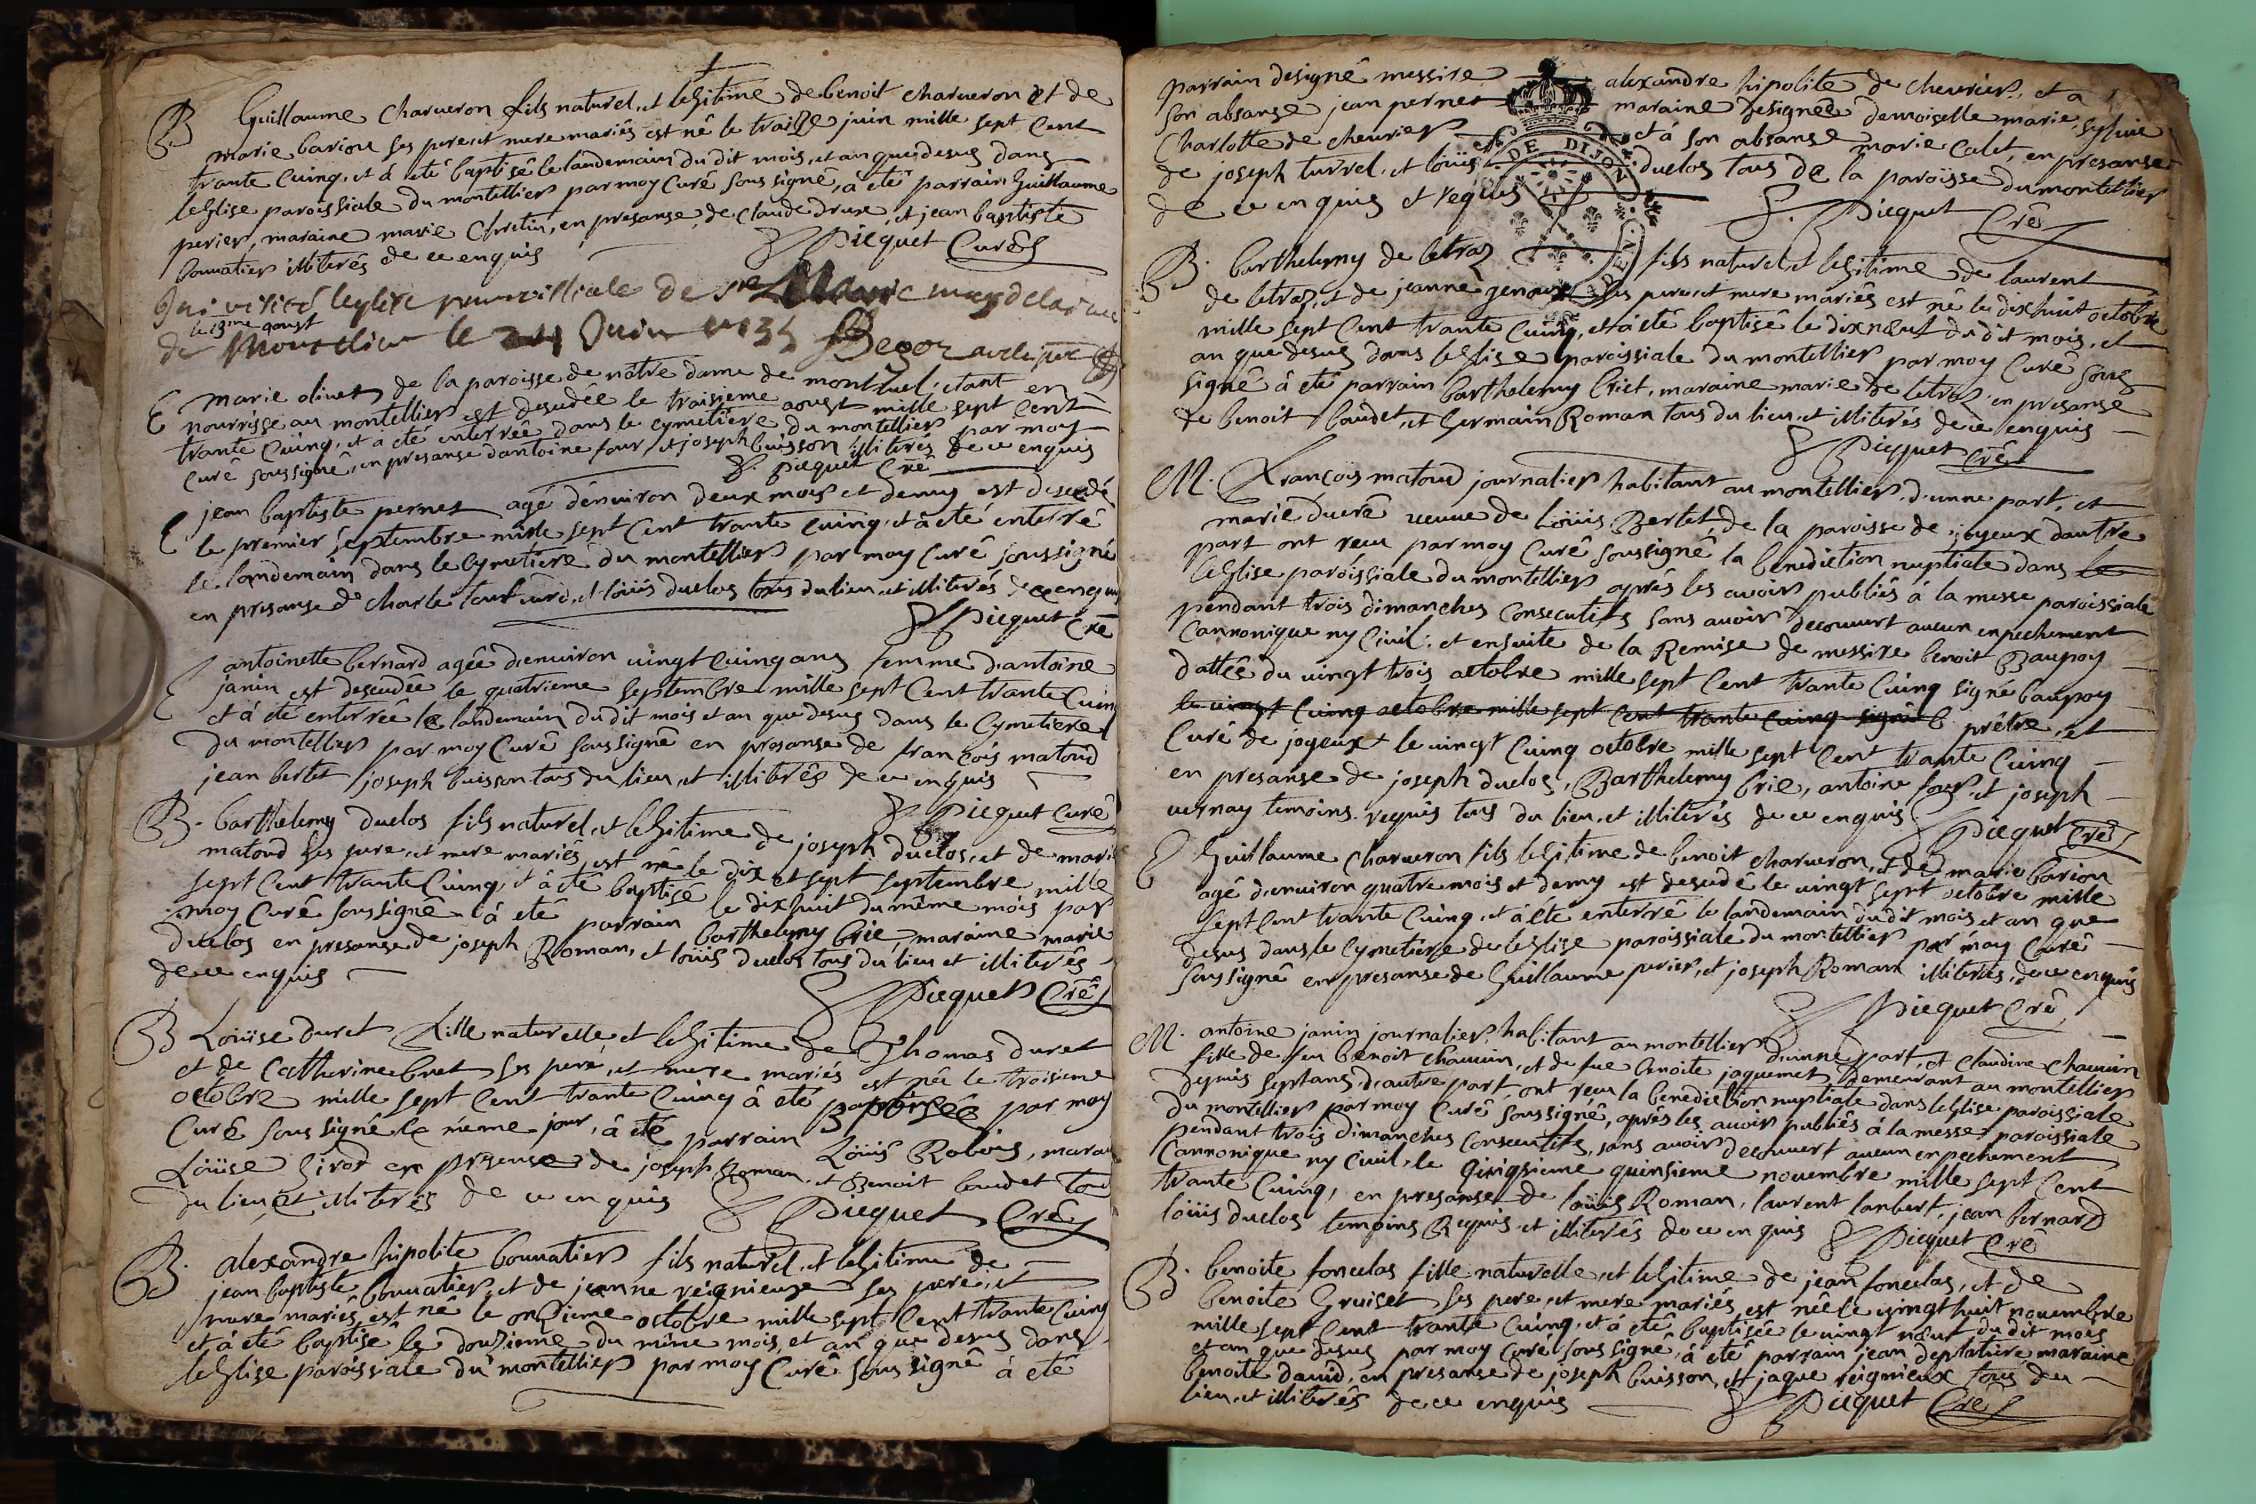 B Guillaume Charveron fils naturel, et lehitime de benoit charveron et de
marie barion ses pere, et mere mariés est né le traize juin mille sept cent
trante cuinq, et à eté baptisé le landemain du dit mois, et an que desus dans
lehglise paroissiale du montellier par moy Curé sous signé, à eté parrain Guillaume
perier, maraine marie Chretin, en presanse, de claude drux, et jean baptiste
bouvatier illiterés de ce enquis
Picquet Curé
J'ai visité leglise parroissiale de Ste Marie magdelaine
le 13me aoust
de Montelier le Juin 1735
E marie olivet de la paroisse de nôtre dame de montluel, etant en
nourrisse au montellier est desedée le traisieme aoust mille sept cent
trante cuinq, et a eté enterrée dans le cymetiere du montellier par moy
Curé soussigné, en presanse dantoine four, et joseph buisson illiterés de ce enquis
Picquet Cré
E jean baptiste pernet agé d'environ deux mois et demy est desedé
le premier septembre mille sept cent trante cuinq, et à eté enterré
le landemain dans le Cymetiere du montellier par moy Curé soussigné
en presanse de charle, et loüis duclos tous du lieu, et illiterés de ce enquis
Picquet Cré
E antoinette bernard agée d'environ vingt cuinq ans femme d'antoine
janin est desedée le quatrieme septembre mille sept cent trante cuinq
et à eté enterrée le landemain du dit mois et an que desus dans le Cymetiere
du montellier par moy Curé sous signé en presanse de françois matoud
jean bertet joseph buisson tous du lieu, et illiterés de ce enquis
Picquet Curé
B. barthelemy duclos fils naturel, et lehitime de joseph duclos, et de marie
matoud ses pere, et mere mariés, est né le dix et sept septembre mille
sept cent trante cuinq, et à eté baptisé le dix huit du même mois par
moy Curé sous signé à eté parrain barthelemy brie, maraine marie
duclos en presanse de joseph Roman, et loüis duclos tous du lieu et illiterés
de ce enquis
Picquet Cré
B Loüise duret fille naturelle, et lehitime de Thomas duret
et de Catherine bret ses pere, et mere mariés est née le troisieme
octobre mille sept cent trante cuinq à eté baptisée par moy
Curé sous signé le même jour, à eté parrain Loüis Robin, maraine
Loüise Girod en presense de joseph Roman, et Benoit baudet tous
du lieu, et illiterés de ce enquis
Picquet Cré
B. alexandre hipolite bouvatier fils naturel, et lehitime de
jean baptiste bouvatier, et de jeanne reignieux ses pere, et
mere mariés est né le onzieme octobre mille sept cent trante cuinq
et à eté baptisé le douzieme du même mois, et an que desus dans
lehglise paroissiale du montellier par moy Curé sous signé à eté
parrain designé messire alexandre hipolite de chevrier, et a
son absanse jean pernet maraine designée demoiselle marie sylvie
Charlotte de chevrier et à son absanse marie calet, en presanse
de joseph turrel, et loüis duclos tous de la paroisse du montellier
de ce enquis et requis
Picquet Cré
DE DIJON
B. barthelemy de letraz fils naturel, et lehitime de laurent
de letraz, et de jeanne genoux ses pere, et mere mariés est né le dix huit octobre
mille sept cent trante cuinq, et à eté baptisé le dix neuf du dit mois, et
an que desus dans lehglise paroissiale du montellier par moy Curé sous
signé à eté parrain barthelemy briet, maraine marie de letraz en presanse
de benoit baudet, et Germain Roman tous du lieu, et illiterés de ce enquis
Picquet Cré
M. François matoud journalier habitant au montellier, d'unne part, et
marie ducré veuve de Loüis Bertet, de la paroisse de joyeux dautre
part ont reçu par moy Curé soussigné la benediction nuptiale dans le
lehglise paroissiale du montellier aprés les avoir publiés à la messe paroissiale
pendant trois dimanches consecutifs sans avoir decouvert aucun enpechement
Cannonique ny Civil, et ensuite de la Remise de messire benoit Baupoy
dattée du vingt trois octobre mille sept cent trante cuinq signé baupoy
le vingt cuinq octobre mille sept cent trante cuinq signé b prêtre, et
Curé de joyeux le vingt cuinq octobre mille sept cent trante cuinq
en presanse de joseph duclos, Barthelemy brie, antoine four, et joseph
vernay temoins requis tous du lieu, et illiterés de ce enquis
Picquet Cré
E Guillaume charveron fils lehitime de benoit charveron, et de marie barion
agé d'environ quatre mois et demy est desedé le vingt sept octobre mille
sept cent trante cuinq, et à eté enterré le landemain du dit mois, et an que
desus dans le Cymetiere de lehglise paroissiale du montellier par moy Curé
sous signé en presanse de Guillaume perier, et joseph Roman illiterés, de ce enquis
Picquet Cré
M. antoine janin journalier habitant au montellier d'unne part, et claudine chauvin
fille de feu benoit chauvin, et de fue benoite jaquemet demeurant au montellier
depuis sept ans d'autre part, ont reçu la benediction nuptiale dans lehglise paroissiale
du montellier par moy Curé soussigné, aprés les avoir publiés à la messe paroissiale
pendant trois dimanches consecutifs, sans avoir decouvert aucun enpechement
Cannonique ny civil, le quinsieme novembre mille sept cent
trante cuinq, en presanse de loüis Roman, laurent lanbert, jean bernard
loüis duclos temoins Requis et illiterés de ce enquis
Picquet Cré
B. benoite foncelas fille naturelle, et lehitime de jean foncelas, et de
benoite Gruiset ses pere, et mere mariés, est née le vingt huit novembre
mille sept cent trante cuinq, et à eté baptisée le vingt neuf du dit mois
et an que desus par moy Curé sous signé, à eté parrain jean deplature, maraine
benoite david, en presanse de joseph buisson, et jaque reignieux tous du
lieu, et illiterés de ce enquis
Picquet Cré